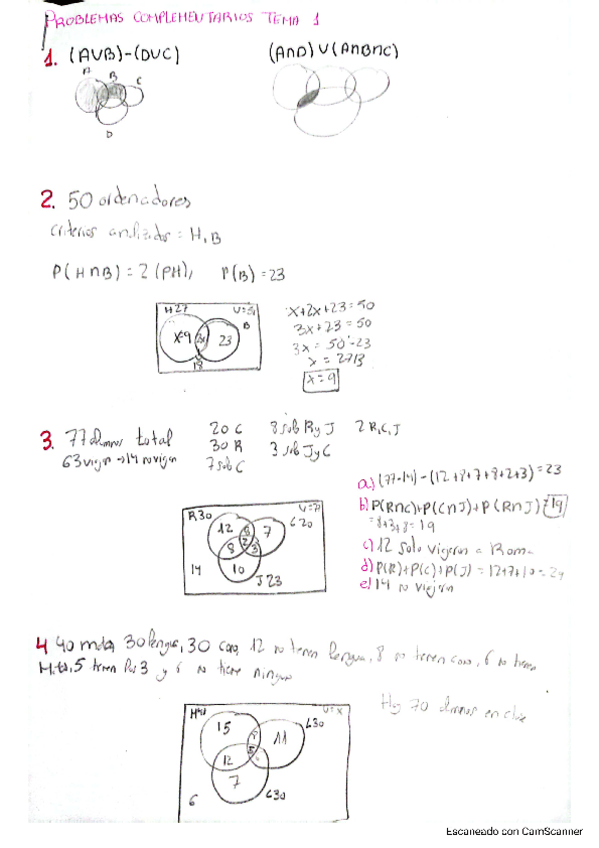 PROBLEMAS COMPLEMENTARIOS TEMA 1
1. (AUB)-(DUC) (A∩D)U(A∩B∩C)
A B C
D
2. 50 ordenadores
criterios analizados: H, B
P(H∩B) = 2(PH), P(B) = 23
H27 B
x=9 2x 23
18
x+2x+23=50
3x+23=50
3x = 50-23
x = 27/3
x=9
3. 77 alumnos total 20 C 8 solo R y J 2 R,C,J
63 viajan → 14 no viajan 30 R 3 solo J y C
7 solo C
R30 C20
12 8 7
2
8 3
10
14 J23
a) (77-14)-(12+8+7+8+2+3)=23
b) P(R∩C)+P(C∩J)+P(R∩J)=19
=8+3+8=19
c) 12 solo viajaron a Roma
d) P(R)+P(C)+P(J) = 12+7+10=29
e) 14 no viajan
4 40 mates, 30 lengua, 30 cono, 12 no tienen lengua, 8 no tienen cono, 6 no tienen
Mates, 5 tienen las 3 y 6 no tiene ninguna
Hay 70 alumnos en clase
U=x
L30
15
11
5
12
7
6 C30
Escaneado con CamScanner